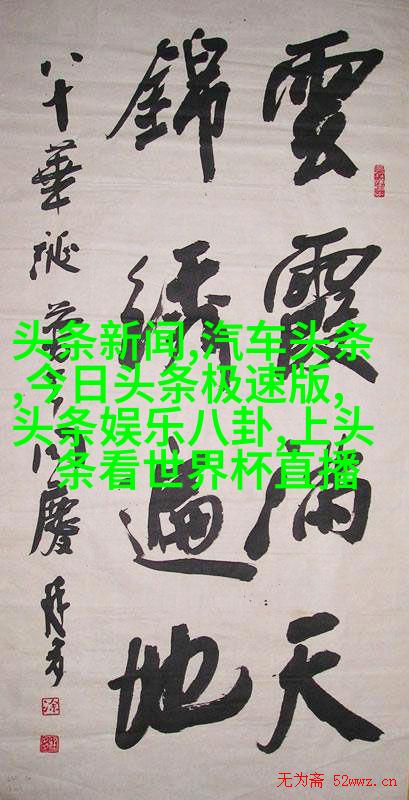 雲霞滿天
錦綉遍地
八十華誕
慶
头条新闻,汽车头条
,今日头条极速版,
头条娱乐八卦,上头
条看世界杯直播
无为斋 52wwz.cn